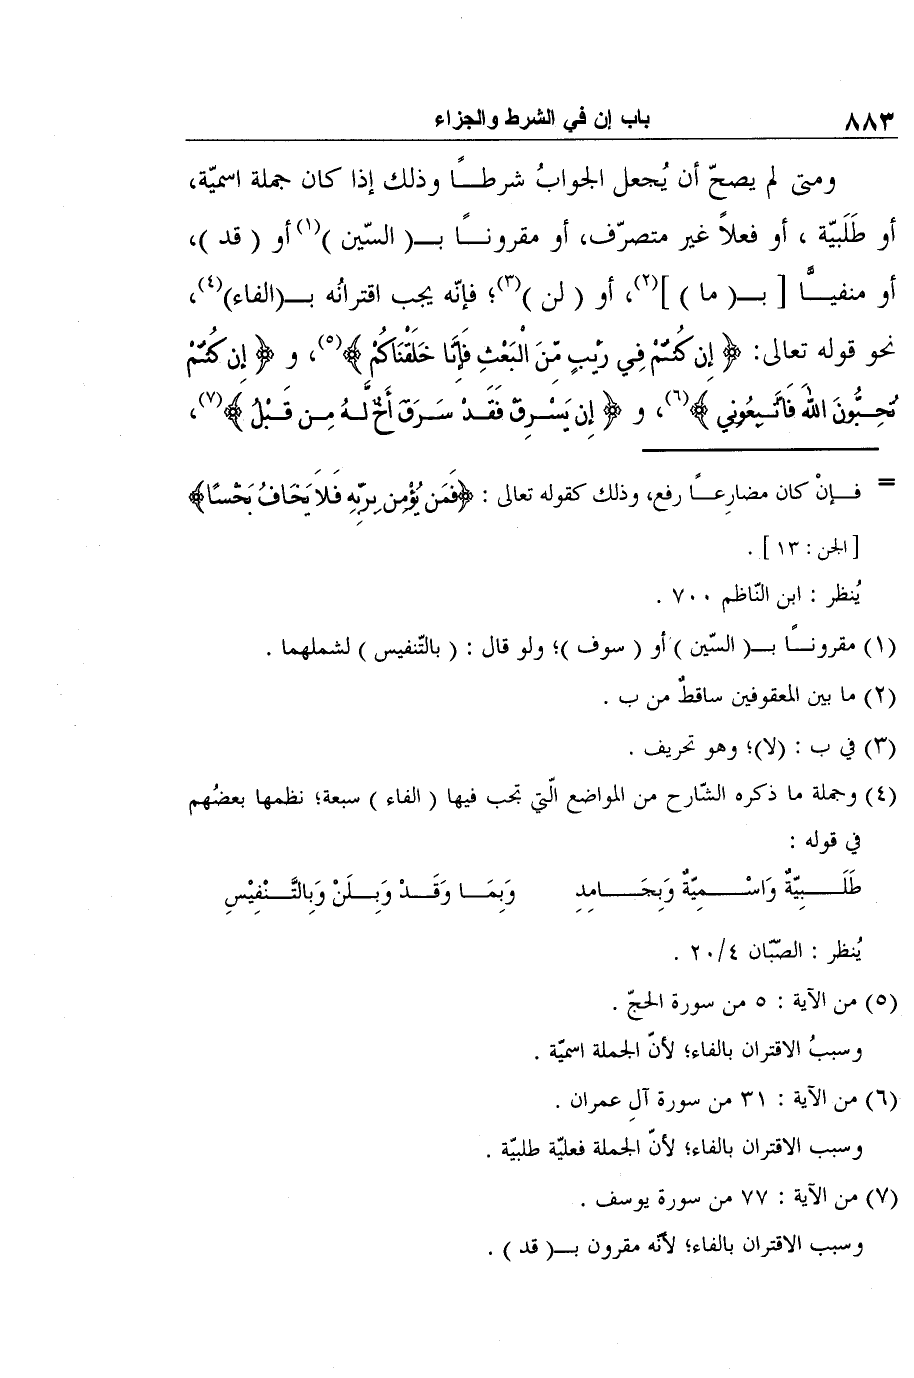 ٨٨٣ باب إن في الشرط والجزاء
ومتى لم يصحّ أن يُجعل الجوابُ شرطــاً وذلك إذا كان جملة اسميّة،
أو طَلَبيّة ، أو فعلاً غير متصرّف، أو مقرونــاً بــ( السّين )(١) أو ( قد )،
أو منفيــاًّ [ بــ( ما ) ](٢)، أو ( لن )(٣)؛ فإنّه يجب اقترانُه بــ(الفاء)(٤)،
نحو قوله تعالى: ﴿ إِن كُنتُمْ فِي رَيْبٍ مِّنَ الْبَعْثِ فَإِنَّا خَلَقْنَاكُمْ ﴾(٥)، و ﴿ إِن كُنتُمْ
تُحِبُّونَ اللَّهَ فَاتَّبِعُونِي ﴾(٦)، و ﴿ إِن يَسْرِقْ فَقَدْ سَرَقَ أَخٌ لَّهُ مِن قَبْلُ ﴾(٧)،
= فــإنْ كان مضارِعــاً رفع، وذلك كقوله تعالى : ﴿فَمَن يُؤْمِن بِرَبِّهِ فَلَا يَخَافُ بَخْسًا﴾
[ الجن : ١٣ ] .
يُنظر : ابن النّاظم ٧٠٠ .
(١) مقرونــاً بــ( السّين ) أو ( سوف )؛ ولو قال : ( بالتّنفيس ) لشملهما .
(٢) ما بين المعقوفين ساقطٌ من ب .
(٣) في ب : (لا)؛ وهو تحريف .
(٤) وجملة ما ذكره الشّارح من المواضع الّتي تجب فيها ( الفاء ) سبعة؛ نظمها بعضُهم
في قوله :
طَلَــبِيّةٌ وَاسْــمِيّةٌ وَبِجَــامِدِ وَبِمَــا وَقَــدْ وَبِــلَنْ وَبِالتَّــنْفِيْسِ
يُنظر : الصّبّان ٢٠/٤ .
(٥) من الآية : ٥ من سورة الحجّ .
وسببُ الاقتران بالفاء؛ لأنّ الجملة اسميّة .
(٦) من الآية : ٣١ من سورة آلِ عمران .
وسبب الاقتران بالفاء؛ لأنّ الجملة فعليّة طلبيّة .
(٧) من الآية : ٧٧ من سورة يوسف .
وسبب الاقتران بالفاء؛ لأنّه مقرون بــ( قد ) .